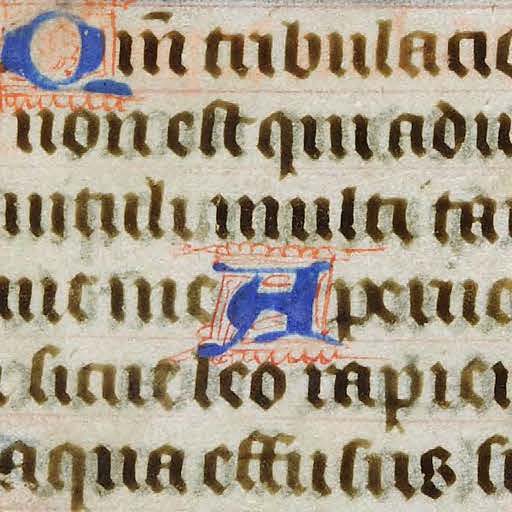 Qm̄ tribulacio
non est qui adiu
uituli multi tau
unt me Aperue
sicut leo rapie
aqua effusus su